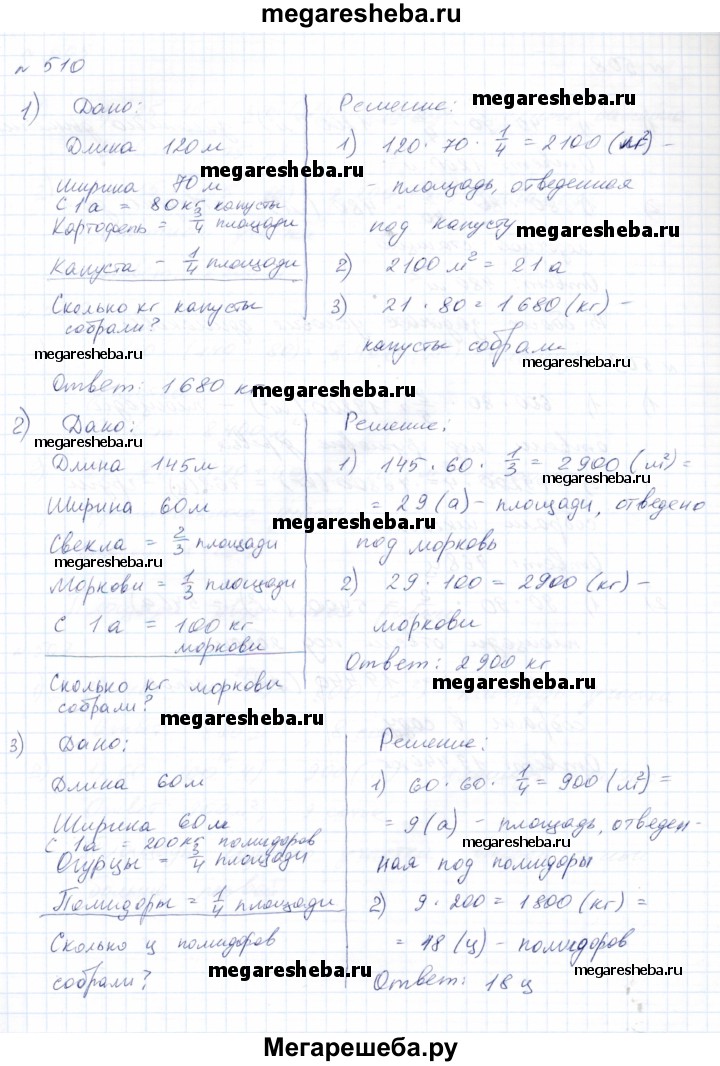 megaresheba.ru
№ 510
1) Дано:
Длина 120 м
Ширина 70 м
С 1 а = 80 кг капусты
Картофель = 3/4 площади
Капуста - 1/4 площади
Сколько кг капусты
собрали?
Ответ: 1680 кг
Решение:
1) 120 · 70 · 1/4 = 2100 (м²) -
- площадь, отведенная
под капусту
2) 2100 м² = 21 а
3) 21 · 80 = 1680 (кг) -
капусты собрали
megaresheba.ru
megaresheba.ru
megaresheba.ru
megaresheba.ru
megaresheba.ru
megaresheba.ru
2) Дано:
Длина 145 м
Ширина 60 м
Свекла = 2/3 площади
Моркови = 1/3 площади
С 1 а = 100 кг
моркови
Сколько кг моркови
собрали?
Решение:
1) 145 · 60 · 1/3 = 2900 (м²) =
= 29 (а) - площади, отведено
под морковь
2) 29 · 100 = 2900 (кг) -
моркови
Ответ: 2900 кг
megaresheba.ru
megaresheba.ru
megaresheba.ru
megaresheba.ru
megaresheba.ru
megaresheba.ru
3) Дано:
Длина 60 м
Ширина 60 м
С 1 а = 200 кг помидоров
Огурцы = 3/4 площади
Помидоры = 1/4 площади
Сколько ц помидоров
собрали?
Решение:
1) 60 · 60 · 1/4 = 900 (м²) =
= 9 (а) - площадь, отведен-
ная под помидоры
2) 9 · 200 = 1800 (кг) =
= 18 (ц) - помидоров
Ответ: 18 ц
megaresheba.ru
megaresheba.ru
megaresheba.ru
Мегарешеба.ру